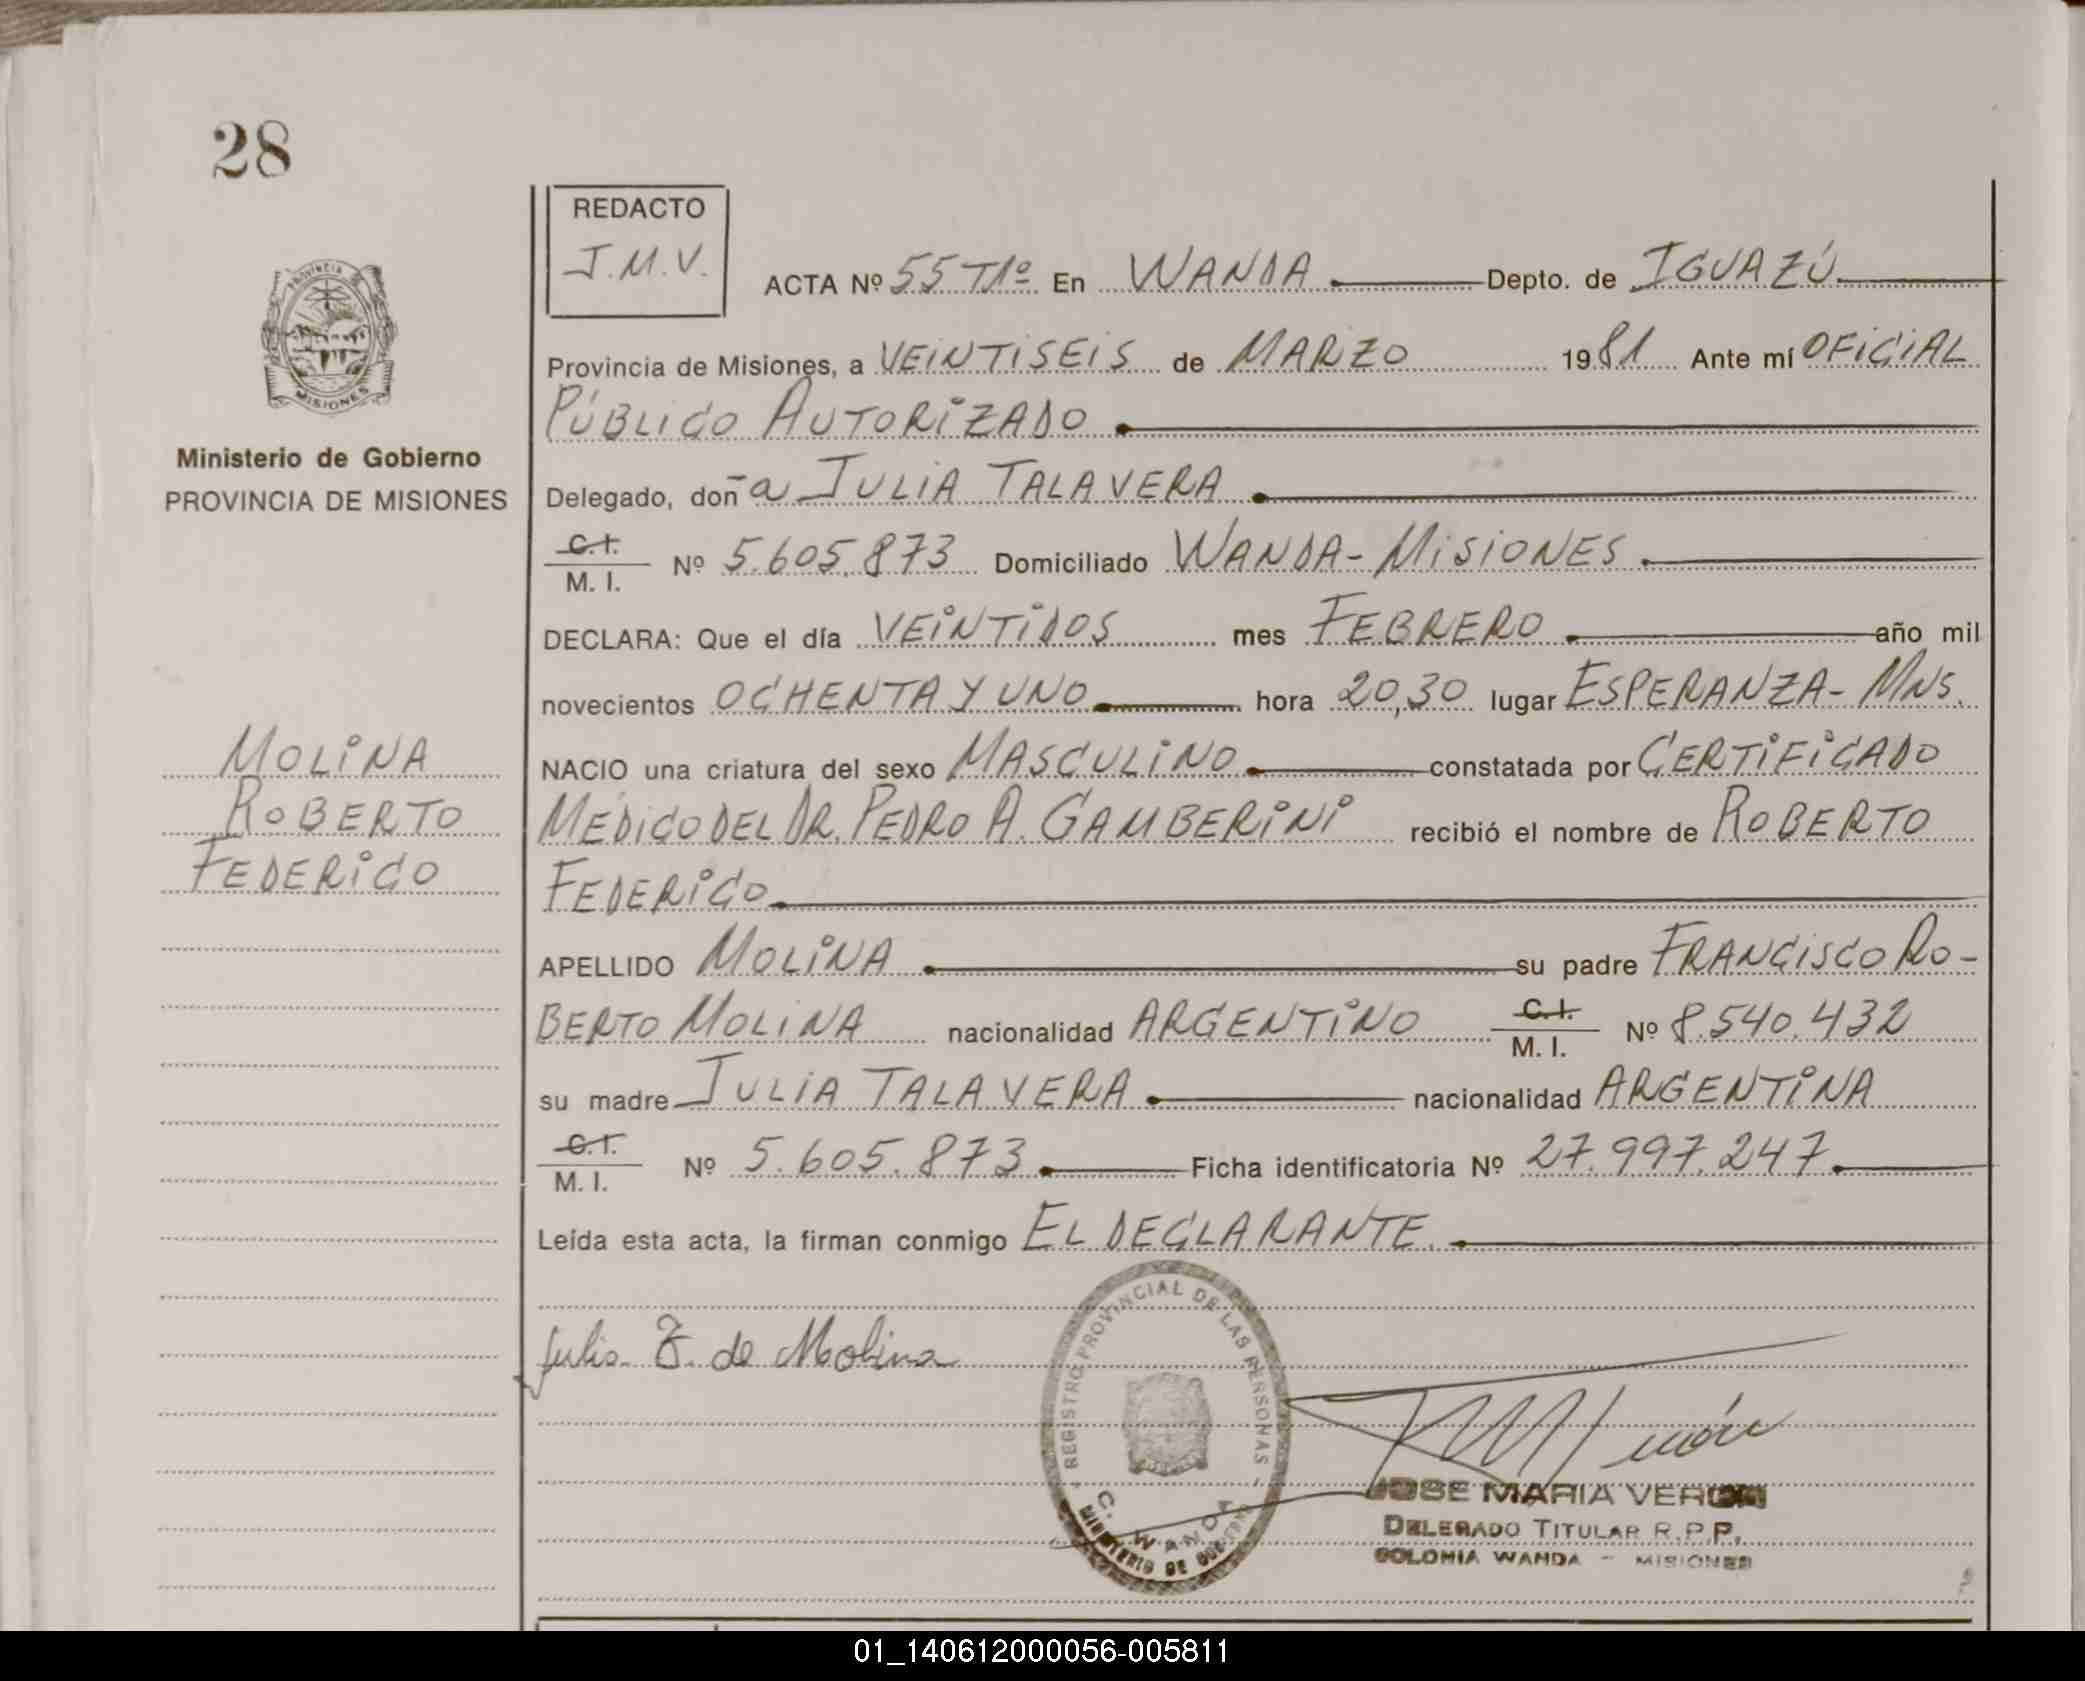 28
REDACTO
J.M.V.
ACTA Nº 55 T1º En WANDA Depto. de IGUAZÚ
PROVINCIA
MISIONES
Provincia de Misiones, a VEINTISEIS de MARZO 1981 Ante mí OFICIAL
PÚBLICO AUTORIZADO
Ministerio de Gobierno
PROVINCIA DE MISIONES
Delegado, doña JULIA TALAVERA
C.I.
M. I. Nº 5.605.873 Domiciliado WANDA - MISIONES
DECLARA: Que el día VEINTIDOS mes FEBRERO año mil
novecientos OCHENTA Y UNO hora 20,30 lugar ESPERANZA - MNS.
MOLINA
ROBERTO
FEDERICO
NACIO una criatura del sexo MASCULINO constatada por CERTIFICADO
MÉDICO DEL DR. PEDRO A. GAMBERINI recibió el nombre de ROBERTO
FEDERICO
APELLIDO MOLINA su padre FRANCISCO RO-
BERTO MOLINA nacionalidad ARGENTINO C.I. M. I. Nº 8.540.432
su madre JULIA TALAVERA nacionalidad ARGENTINA
C.I.
M. I. Nº 5.605.873 Ficha identificatoria Nº 27.997.247
Leída esta acta, la firman conmigo EL DECLARANTE.
Julia T. de Molina
REGISTRO PROVINCIAL DE LAS PERSONAS
C. WANDA
MINISTERIO DE GOBIERNO
JOSE MARIA
DELEGADO TITULAR R.P.P.
COLONIA WANDA - MISIONES
01_140612000056-005811